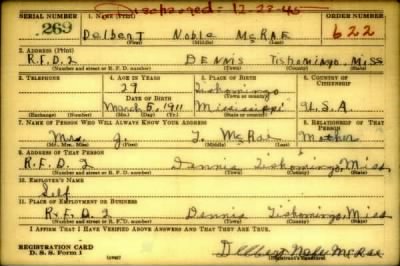 Discharged: 12-22-45
SERIAL NUMBER 1. NAME (Print) ORDER NUMBER
269 Delbert Noble McRAE 622
(First) (Middle) (Last)
2. ADDRESS (Print)
R.F.D. 2 DENNIS Tishomingo, Miss
(Number and street or R. F. D. number) (Town) (County) (State)
3. TELEPHONE 4. AGE IN YEARS 5. PLACE OF BIRTH 6. COUNTRY OF CITIZENSHIP
29 Tishomingo
DATE OF BIRTH (Town or county)
March 5, 1911 Mississippi U.S.A.
(Exchange) (Number) (Mo.) (Day) (Yr.) (State or country)
7. NAME OF PERSON WHO WILL ALWAYS KNOW YOUR ADDRESS RELATIONSHIP OF THAT PERSON
Mrs. J. T. McRae Mother
(Mr., Mrs., Miss) (First) (Middle) (Last)
8. ADDRESS OF THAT PERSON
R.F.D. 2 Dennis Tishomingo, Miss
(Number and street or R. F. D. number) (Town) (County) (State)
10. EMPLOYER'S NAME
Self
11. PLACE OF EMPLOYMENT OR BUSINESS
R.F.D. 2 Dennis Tishomingo, Miss
(Number and street or R. F. D. number) (Town) (County) (State)
I AFFIRM THAT I HAVE VERIFIED ABOVE ANSWERS AND THAT THEY ARE TRUE.
REGISTRATION CARD
D. S. S. Form 1 (over) Delbert Noble McRae